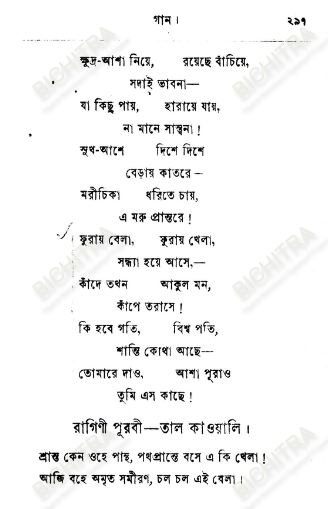 গান। ২৯৭
ক্ষুদ্র-আশা নিয়ে, রয়েছে বাঁচিয়ে,
সদাই ভাবনা—
যা কিছু পায়, হারায়ে যায়,
না মানে সান্ত্বনা!
সুখ-আশে দিশে দিশে
বেড়ায় কাতরে–
মরীচিকা ধরিতে চায়,
এ মরু প্রান্তরে!
ফুরায় বেলা, ফুরায় খেলা,
সন্ধ্যা হয়ে আসে,—
কাঁদে তখন আকুল মন,
কাঁপে তরাসে!
কি হবে গতি, বিশ্ব পতি,
শান্তি কোথা আছে—
তোমারে দাও, আশা পূরাও
তুমি এস কাছে!
রাগিণী পূরবী—তাল কাওয়ালি।
শ্রান্ত কেন ওহে পান্থ, পথপ্রান্তে বসে এ কি খেলা!
আজি বহে অমৃত সমীরণ, চল চল এই বেলা।
BICHITRA